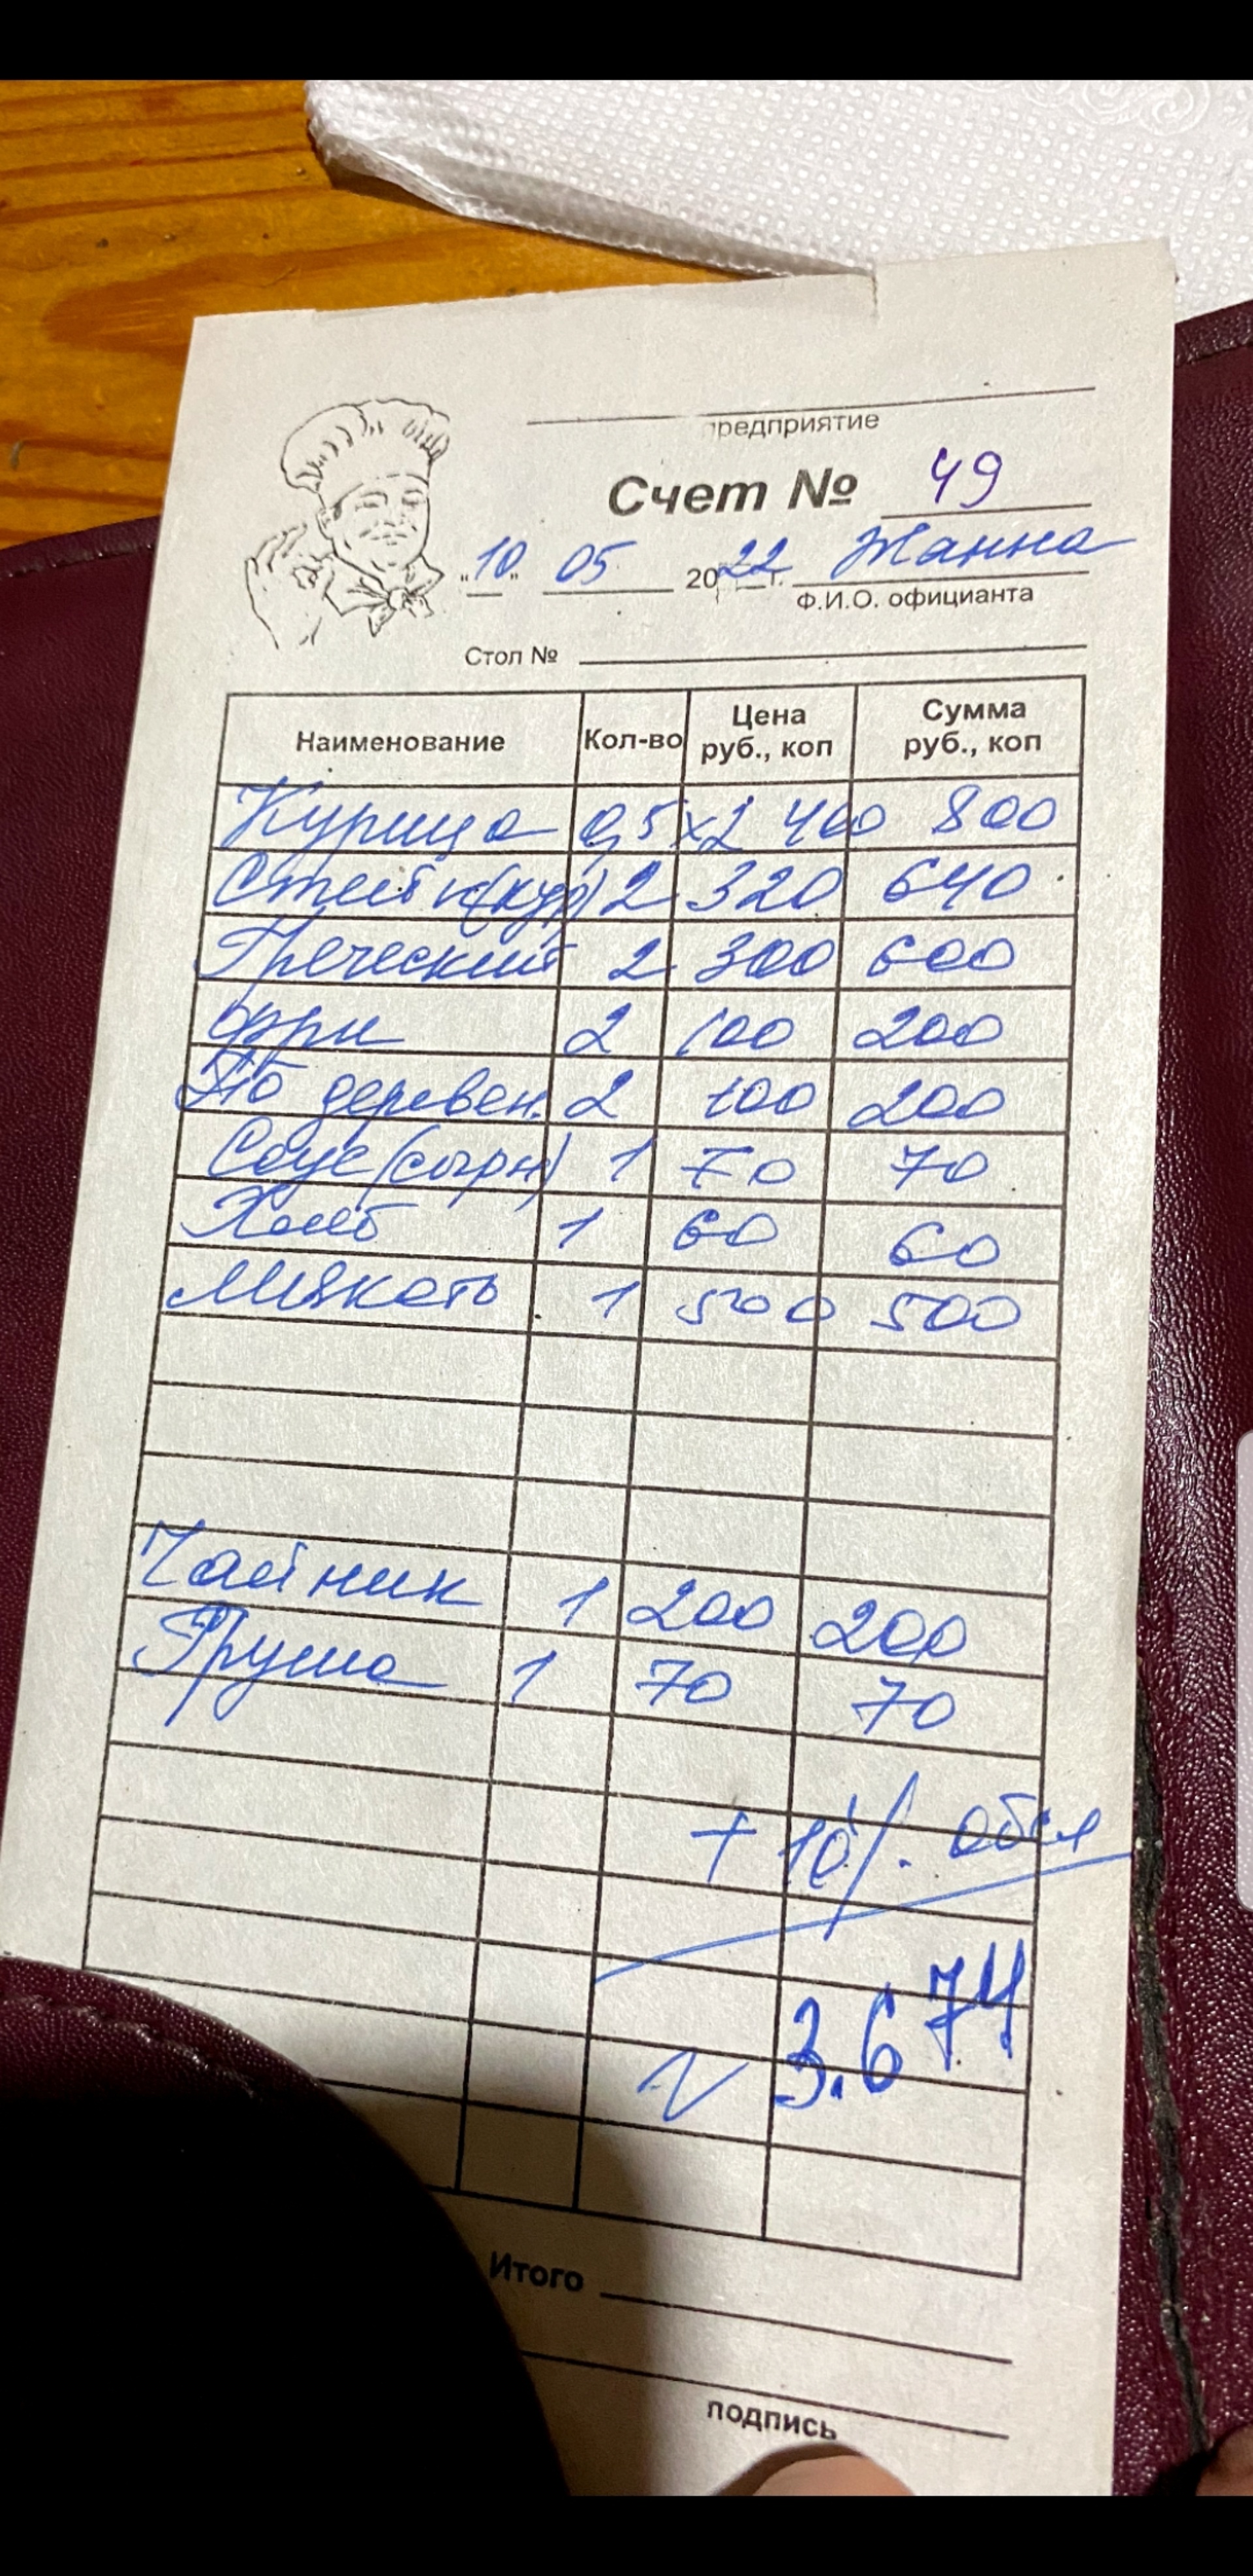 предприятие
Счет № 49
"10" 05 2022 г. Жанна
Ф.И.О. официанта
Стол №
Наименование Кол-во Цена руб., коп Сумма руб., коп
Курица 0,5х2 400 800
Стейк(кур) 2 320 640
Греческий 2 300 600
фри 2 100 200
По деревен. 2 100 200
Соус (сырн) 1 70 70
Хлеб 1 60 60
Мякоть 1 500 500
Чайник 1 200 200
Груша 1 70 70
+ 10% обсл
3.674
Итого
подпись